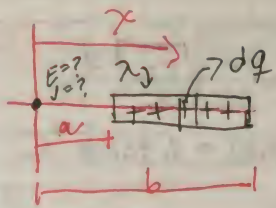 x
E=?
V=?
λ
dq
++ + ++
a
b